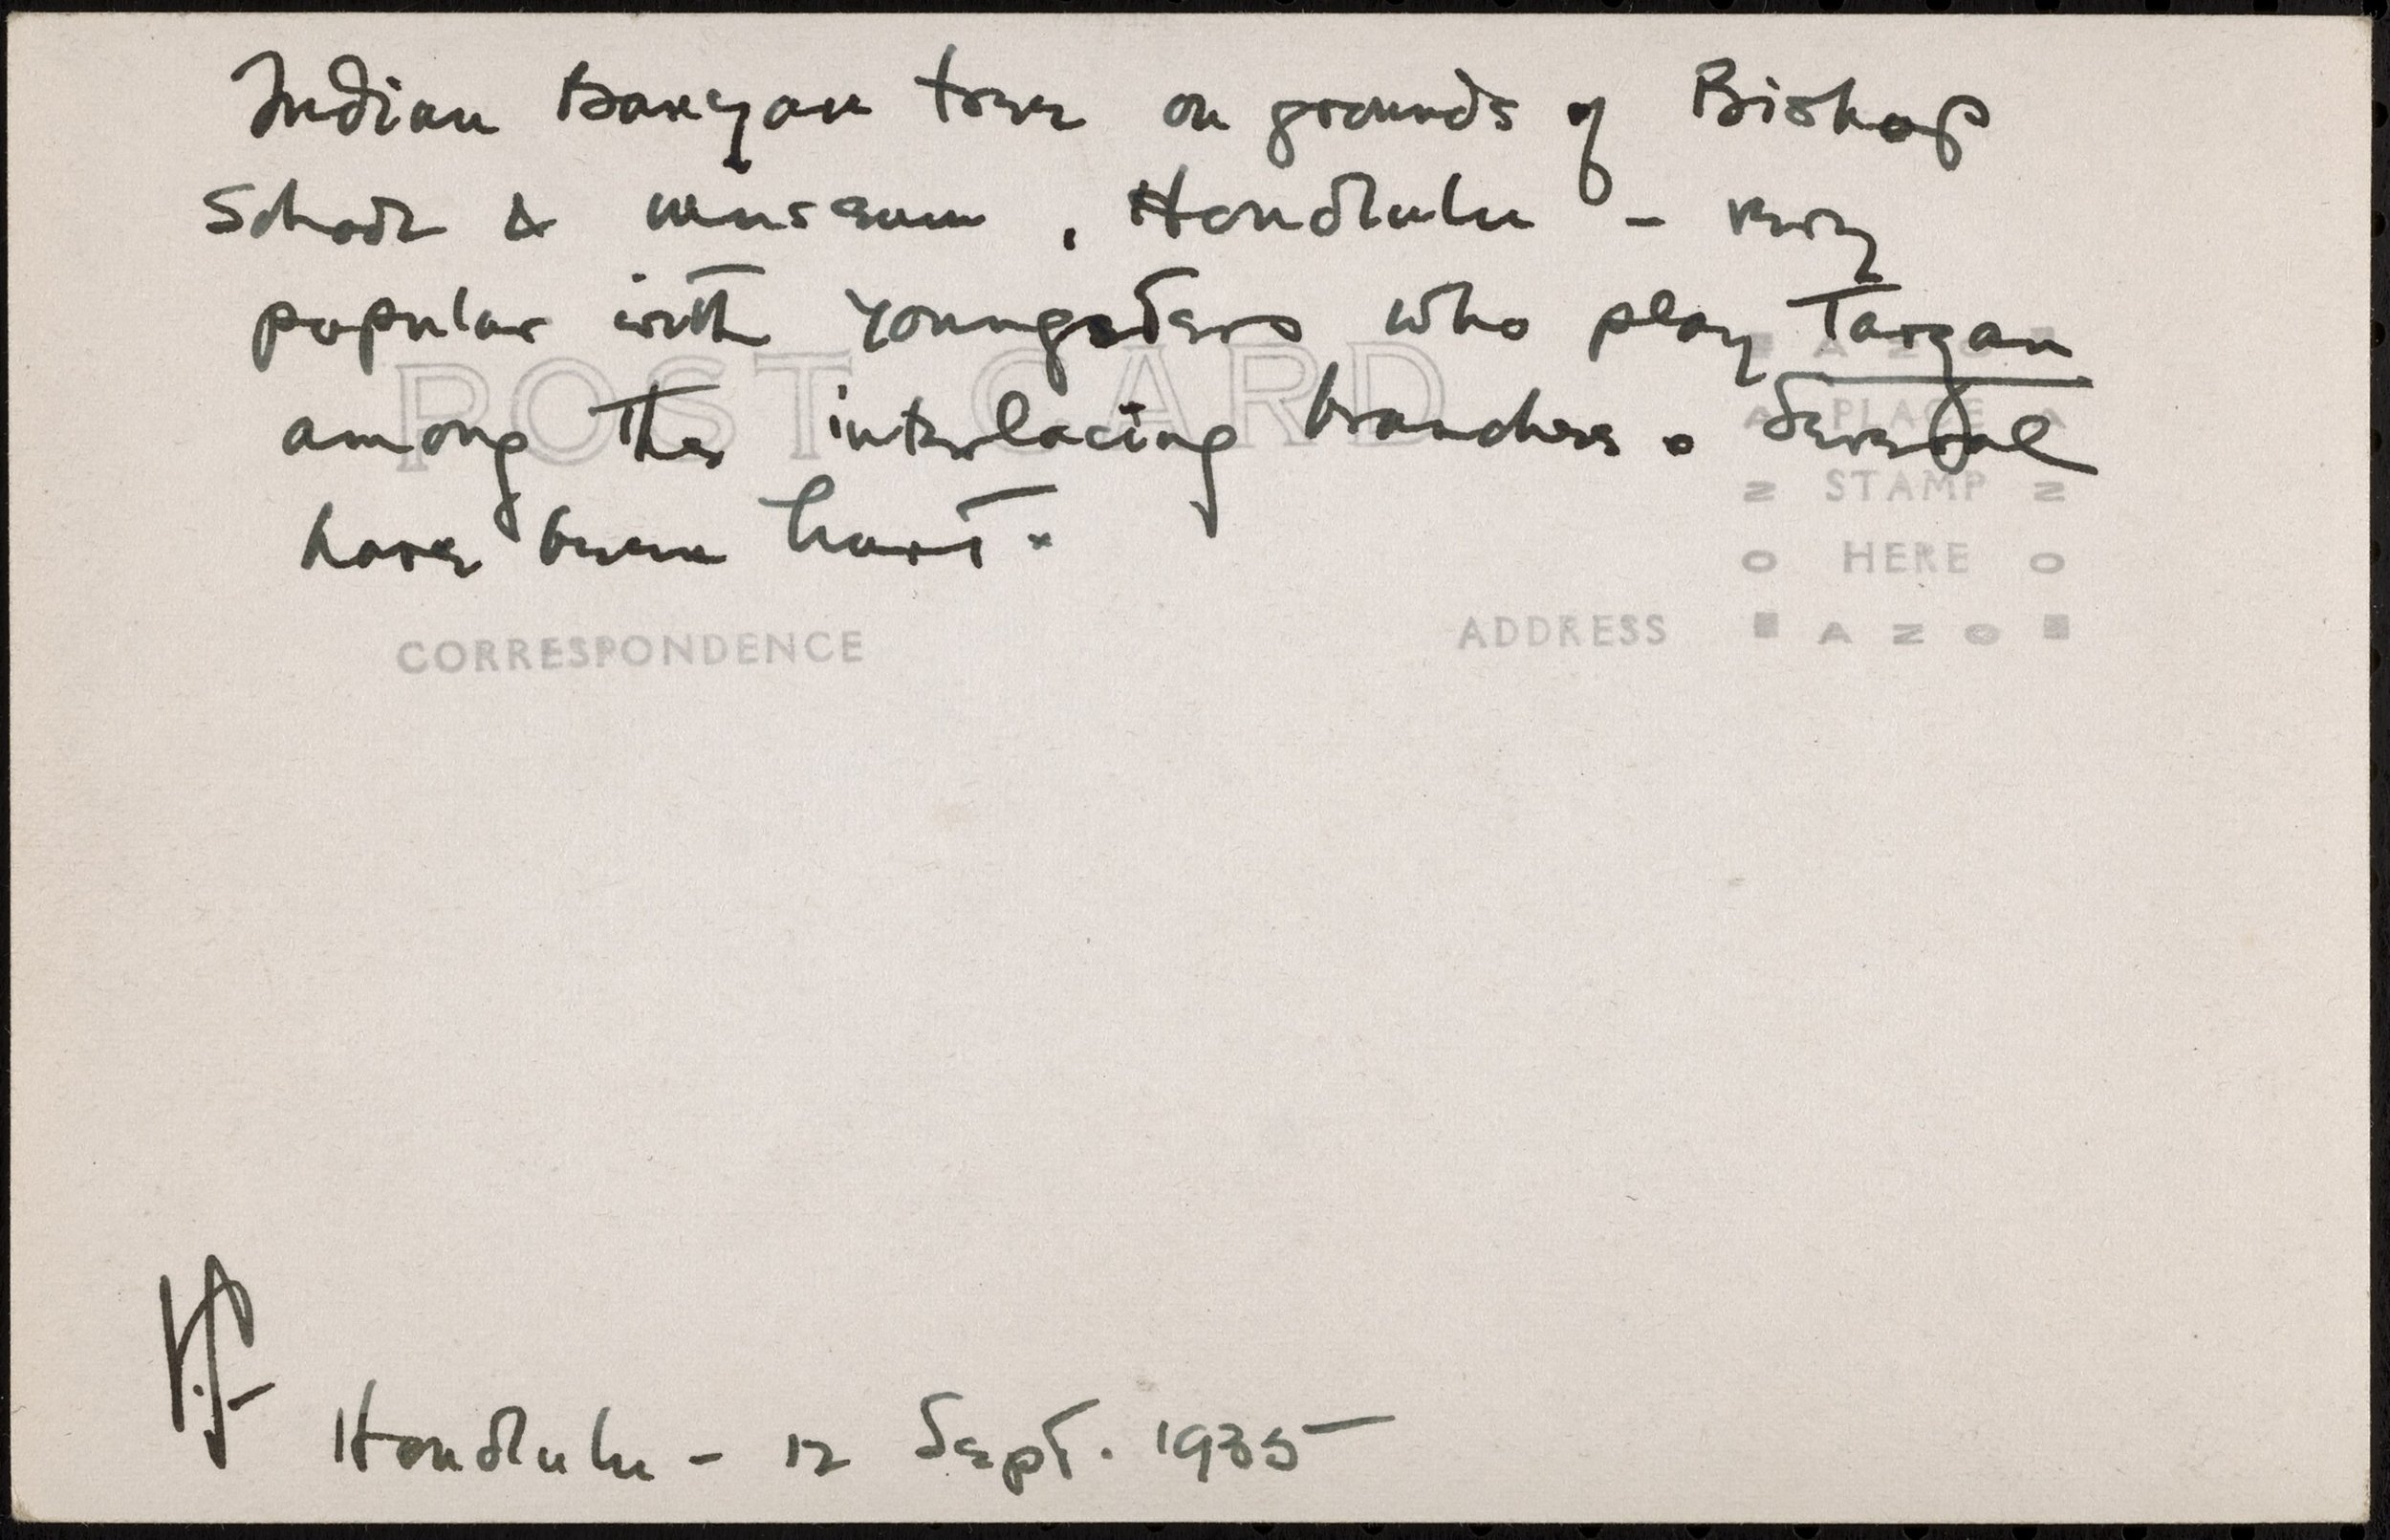 Indian Banyan tree on grounds of Bishop
School & museum, Honolulu - very
popular with youngsters who play Tarzan
among the interlacing branches. Several
have been hurt.
POST CARD
AZO
A PLACE A
Z STAMP Z
O HERE O
AZO
CORRESPONDENCE
ADDRESS
Honolulu - 12 Sept. 1935